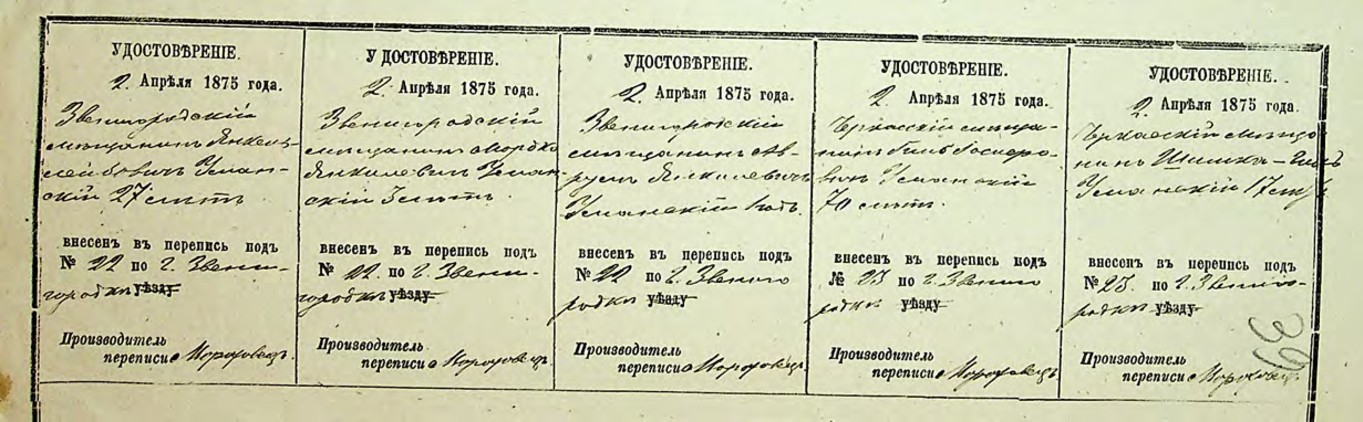 УДОСТОВѢРЕНІЕ.
2 Апрѣля 1875 года.
Звенигородскій
мѣщанинъ Янкель
Лейбовичъ Уман-
скій 27 лѣтъ
внесенъ въ перепись подъ
№ 22 по г. Звени-
городкѣ уѣзду
Производитель
переписи
УДОСТОВѢРЕНІЕ.
2 Апрѣля 1875 года.
Звенигородскій
мѣщанинъ Мордко
Янкелевичъ Уман-
скій 3 лѣтъ
внесенъ въ перепись подъ
№ 22 по г. Звени-
городкѣ уѣзду
Производитель
переписи
УДОСТОВѢРЕНІЕ.
2 Апрѣля 1875 года.
Звенигородскій
мѣщанинъ Ав-
румъ Янкелевичъ
Уманскій 1 годъ.
внесенъ въ перепись подъ
№ 22 по г. Звениго
родкѣ уѣзду
Производитель
переписи
УДОСТОВѢРЕНІЕ.
2 Апрѣля 1875 года.
Черкасскій мѣща-
нинъ
вичъ Уманскій
70 лѣтъ.
внесенъ въ перепись подъ
№ 23 по г. Звениго
родкѣ уѣзду
Производитель
переписи
УДОСТОВѢРЕНІЕ.
2 Апрѣля 1875 года.
Черкасскій мѣща
нинъ Шимка-
Уманскій 17 лѣтъ
внесенъ въ перепись подъ
№ 23. по г. Звениго-
родкѣ уѣзду
Производитель
переписи